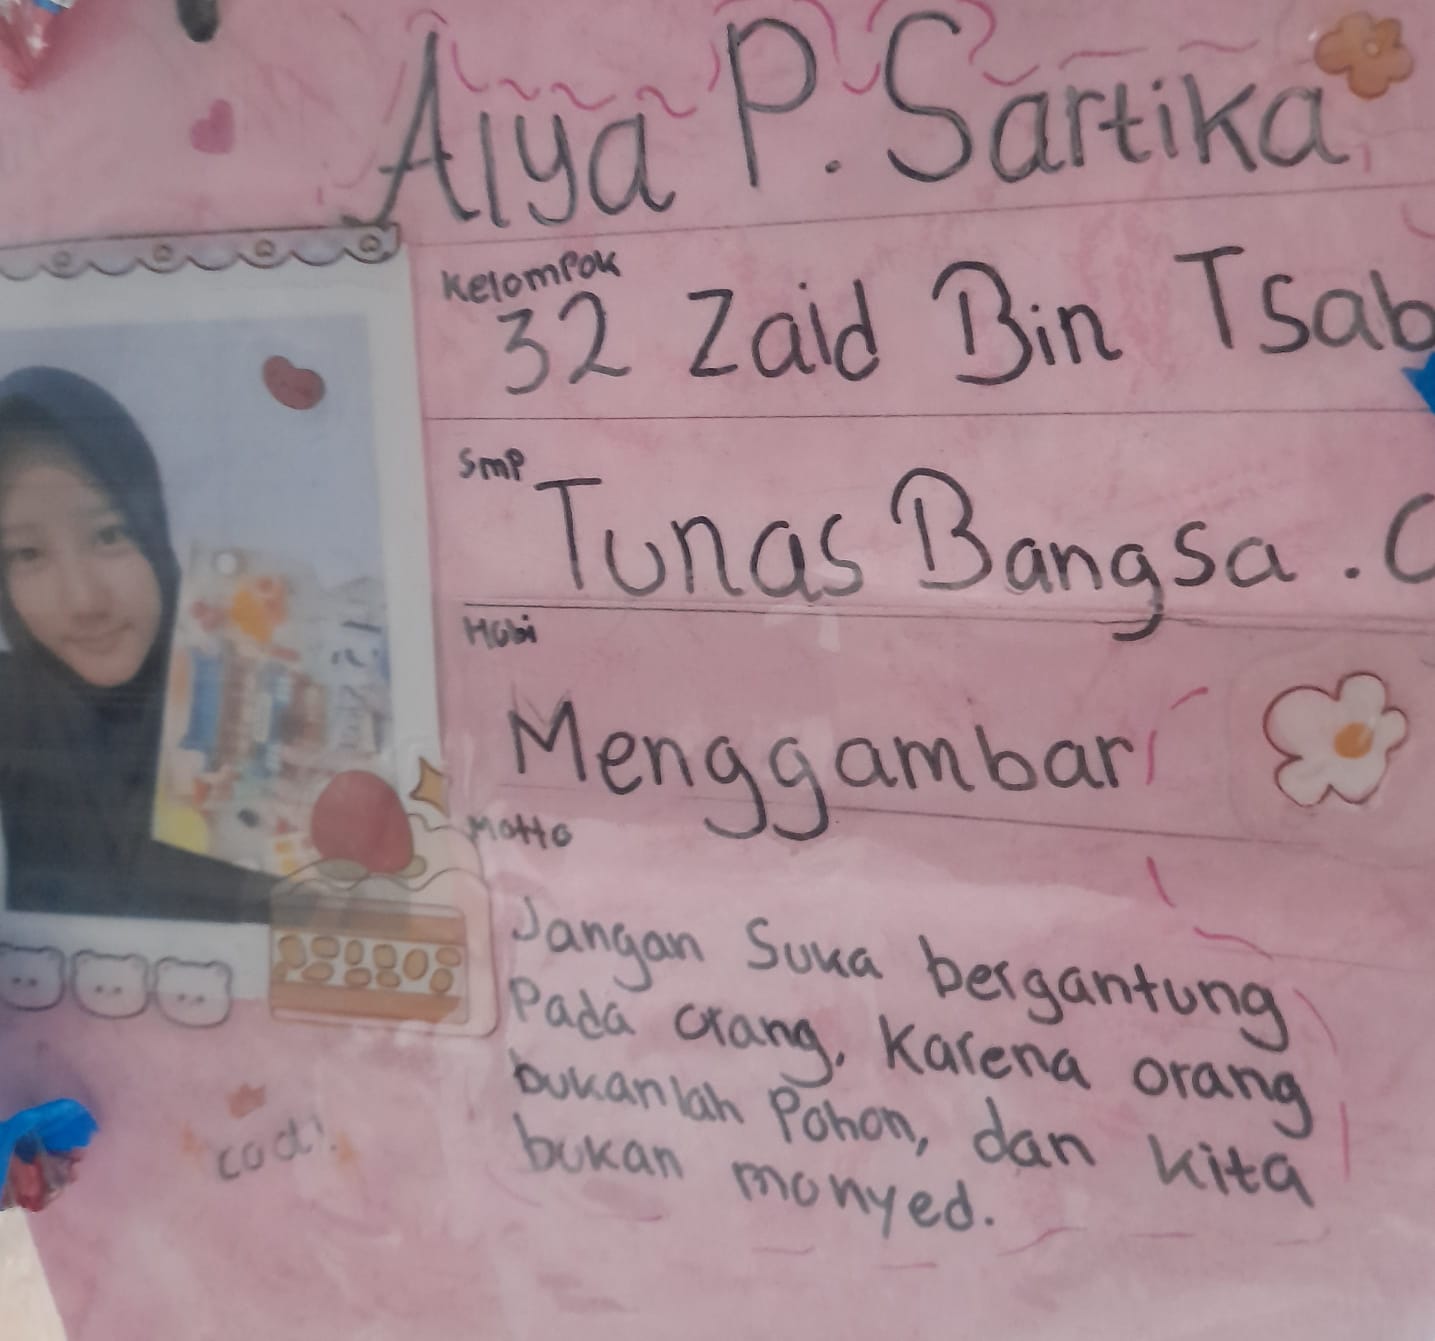 Alya P. Sartika
Kelompok
32 Zaid Bin Tsab
SMP
Tunas Bangsa . C
Hobi
Menggambar
Motto
Jangan Suka bergantung
Pada orang, Karena orang
bukanlah Pohon, dan kita
bukan monyed.